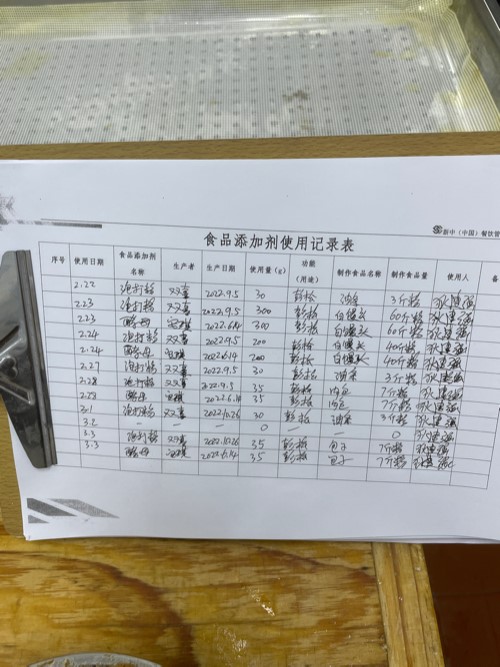 新中(中国)餐饮管
食品添加剂使用记录表
序号 使用日期 食品添加剂名称 生产者 生产日期 使用量(g) 功能(用途) 制作食品名称 制作食品量 使用人 备
2.22 泡打粉 双喜 2022.9.5 30 膨松 油条 3斤粉
2.23 泡打粉 双喜 2022.9.5 300 膨松 白馒头 60斤粉
2.23 酵母 2022.6.14 300 膨松 白馒头 60斤粉
2.24 泡打粉 双喜 2022.9.5 200 膨松 白馒头 40斤粉
2.24 酵母 2022.6.14 200 膨松 白馒头 40斤粉
2.27 泡打粉 双喜 2022.9.5 30 膨松 油条 3斤粉
2.28 泡打粉 双喜 2022.9.5 35 膨松 7斤粉
2.28 酵母 2022.6.14 35 膨松 7斤粉
3.1 泡打粉 双喜 2022.10.26 30 膨松 油条 3斤粉
3.2 — — — 0 — 0
3.3 泡打粉 双喜 2022.10.26 35 膨松 包子 7斤粉
3.3 酵母 2022.6.14 35 膨松 包子 7斤粉